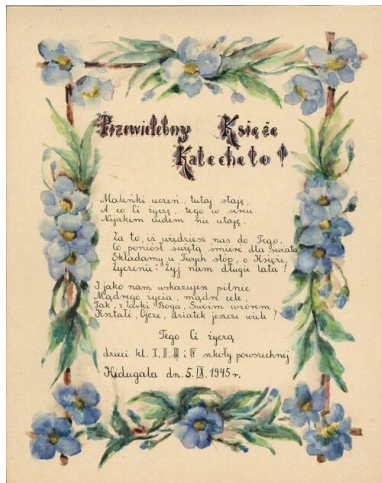 Przewielebny Księże
Katecheto!
Maleńki uczeń, tutaj staję,
A co Ci życzę, tego w sercu
Nijakim cudem nie utaję.
Za to, iż wiedziesz nas do Tego,
Co poniósł świętą śmierć dla świata
Składamy u Twych stóp, o Księże,
Życzenie: Żyj nam długie lata!
I jako nam wskazujesz pilnie
Mądrego życia, mądre cele,
Tak, z łaski Boga, Swoim wzorem,
Kształć, Ojcze, dziatek jeszcze wiele!
Tego Ci życzą
dzieci kl. I, II, III i IV szkoły powszechnej
Kidugala dn. 5.IX.1945 r.